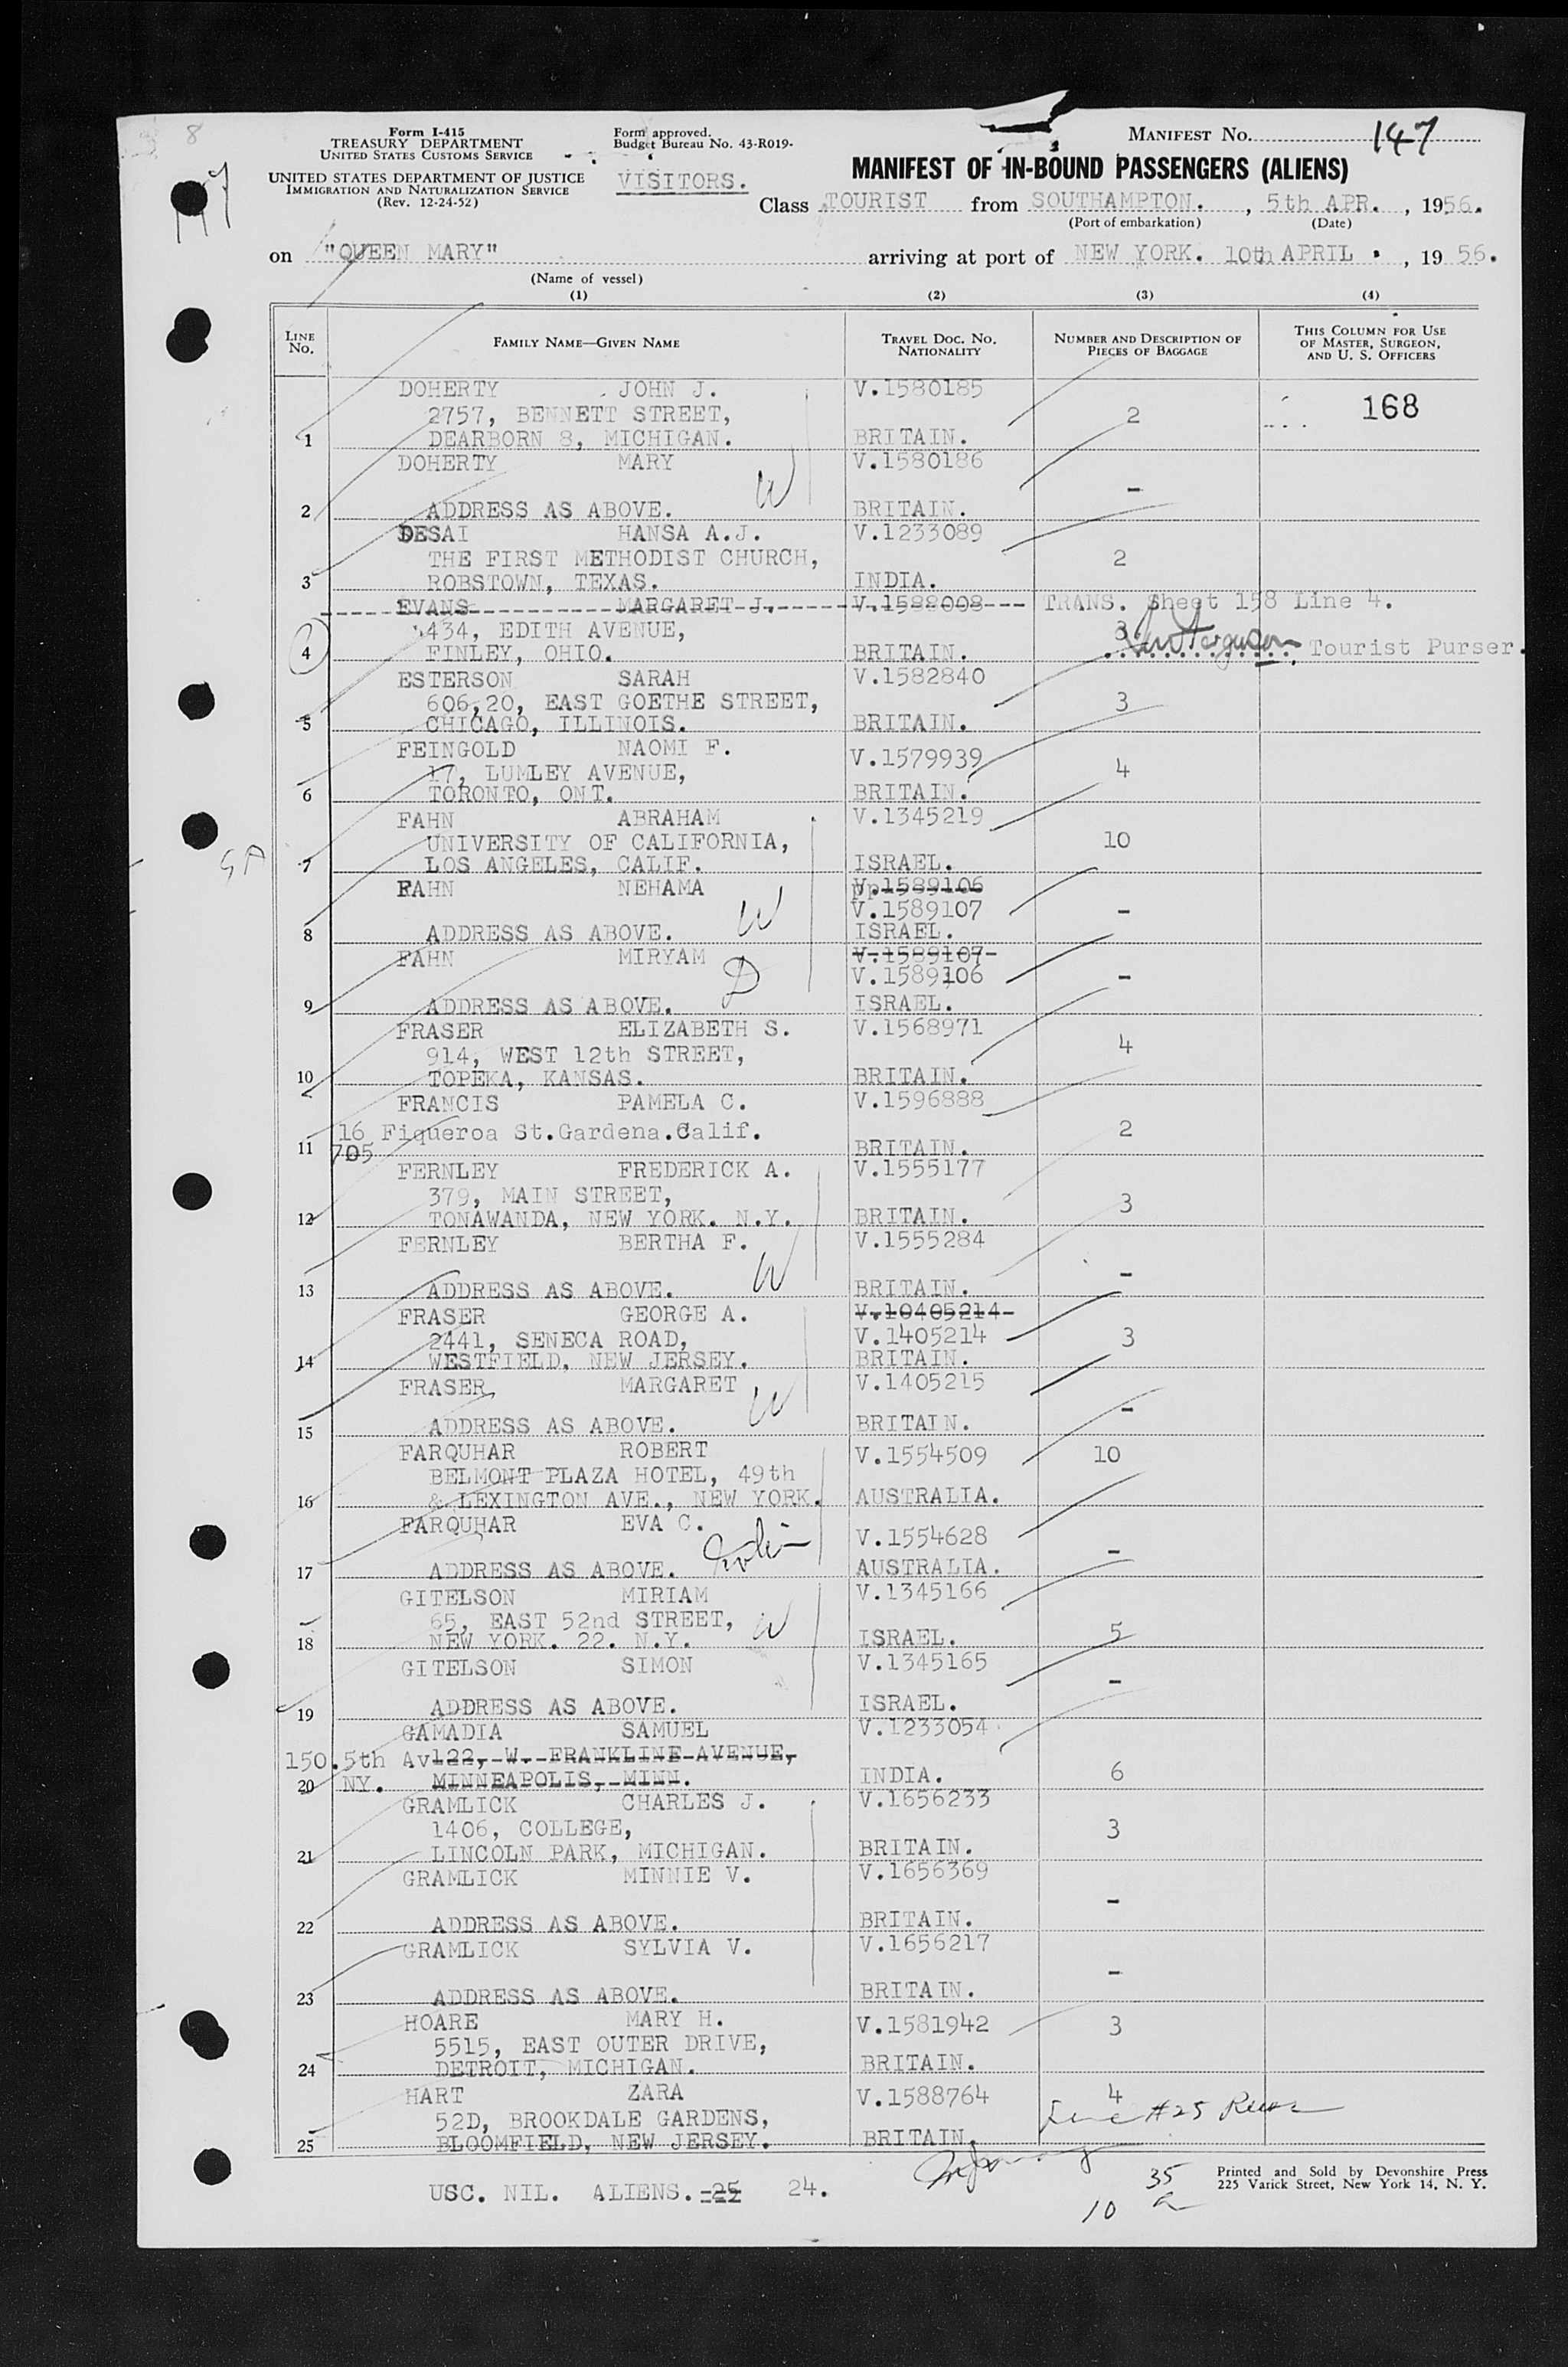 Form I-415
TREASURY DEPARTMENT
UNITED STATES CUSTOMS SERVICE
UNITED STATES DEPARTMENT OF JUSTICE
IMMIGRATION AND NATURALIZATION SERVICE
(Rev. 12-24-52)
Form approved.
Budget Bureau No. 43-R019-
VISITORS.
MANIFEST NO. 147
MANIFEST OF IN-BOUND PASSENGERS (ALIENS)
Class TOURIST from SOUTHAMPTON. , 5th APR. , 1956.
(Port of embarkation) (Date)
on "QUEEN MARY" arriving at port of NEW YORK. 10th APRIL . , 19 56.
(Name of vessel)
(1) (2) (3) (4)
LINE NO. FAMILY NAME—GIVEN NAME TRAVEL DOC. NO. NATIONALITY NUMBER AND DESCRIPTION OF PIECES OF BAGGAGE THIS COLUMN FOR USE OF MASTER, SURGEON, AND U. S. OFFICERS
DOHERTY JOHN J. V.1580185
2757, BENNETT STREET, 2 168
1 DEARBORN 8, MICHIGAN. BRITAIN.
DOHERTY MARY V.1580186
W -
2 ADDRESS AS ABOVE. BRITAIN.
DESAI HANSA A.J. V.1233089
THE FIRST METHODIST CHURCH, 2
3 ROBSTOWN, TEXAS. INDIA.
EVANS MARGARET J. V.1588008 TRANS. Sheet 158 Line 4.
1434, EDITH AVENUE, 3
4 FINLEY, OHIO. BRITAIN. Tourist Purser.
ESTERSON SARAH V.1582840
606,20, EAST GOETHE STREET, 3
5 CHICAGO, ILLINOIS. BRITAIN.
FEINGOLD NAOMI F. V.1579939
17, LUMLEY AVENUE, 4
6 TORONTO, ONT. BRITAIN.
FAHN ABRAHAM V.1345219
UNIVERSITY OF CALIFORNIA, 10
7 LOS ANGELES, CALIF. ISRAEL.
FAHN NEHAMA V.1589106
W V.1589107 -
8 ADDRESS AS ABOVE. ISRAEL.
FAHN MIRYAM V.1589107
D V.1589106 -
9 ADDRESS AS ABOVE. ISRAEL.
FRASER ELIZABETH S. V.1568971
914, WEST 12th STREET, 4
10 TOPEKA, KANSAS. BRITAIN.
FRANCIS PAMELA C. V.1596888
16 Figueroa St.Gardena.Calif. 2
11 705 BRITAIN.
FERNLEY FREDERICK A. V.1555177
379, MAIN STREET, 3
12 TONAWANDA, NEW YORK. N.Y. BRITAIN.
FERNLEY BERTHA F. V.1555284
W -
13 ADDRESS AS ABOVE. BRITAIN.
FRASER GEORGE A. V.10405214
2441, SENECA ROAD, V.1405214 3
14 WESTFIELD, NEW JERSEY. BRITAIN.
FRASER MARGARET V.1405215
W -
15 ADDRESS AS ABOVE. BRITAIN.
FARQUHAR ROBERT V.1554509 10
BELMONT PLAZA HOTEL, 49th
16 & LEXINGTON AVE., NEW YORK. AUSTRALIA.
FARQUHAR EVA C. V.1554628
-
17 ADDRESS AS ABOVE. AUSTRALIA.
GITELSON MIRIAM V.1345166
65, EAST 52nd STREET, W
18 NEW YORK. 22. N.Y. ISRAEL. 5
GITELSON SIMON V.1345165
-
19 ADDRESS AS ABOVE. ISRAEL.
GAMADIA SAMUEL V.1233054
150.5th Av122, W. FRANKLINE AVENUE,
20 NY. MINNEAPOLIS, MINN. INDIA. 6
GRAMLICK CHARLES J. V.1656233
1406, COLLEGE, 3
21 LINCOLN PARK, MICHIGAN. BRITAIN.
GRAMLICK MINNIE V. V.1656369
-
22 ADDRESS AS ABOVE. BRITAIN.
GRAMLICK SYLVIA V. V.1656217
-
23 ADDRESS AS ABOVE. BRITAIN.
HOARE MARY H. V.1581942 3
5515, EAST OUTER DRIVE,
24 DETROIT, MICHIGAN. BRITAIN.
HART ZARA V.1588764 4
52D, BROOKDALE GARDENS, Line #25
25 BLOOMFIELD, NEW JERSEY. BRITAIN.
USC. NIL. ALIENS. 25 24.
35
10
Printed and Sold by Devonshire Press
225 Varick Street, New York 14, N. Y.